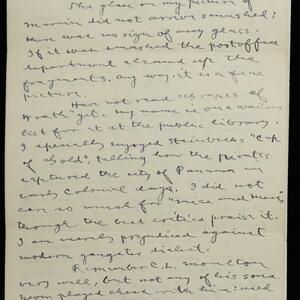 The glass on my picture of
Marvin did not arrive smashed;
there was no sign of any glass.
If it was smashed the postoffice
department cleaned up the
fragments. Any way, it is a fine
picture.
Have not read "Grapes of
Wrath" yet. My name is on a waiting
list for it at the public library.
I specially enjoyed Steinbeck's "Cup
of Gold", telling how the pirates
captured the city of Panama in
early Colonial days. I did not
care so much for "Mice and Men"
through the critics praise it.
I am merely prejudiced against
modern gangster dialect.
Remember C. L. Moulton
very well, but not any of his sons.
played chess with him; used